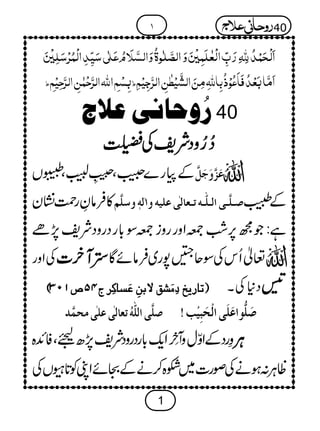 40 روحانی علاج
۱
اَلْحَمْدُ لِلّٰہِ رَبِّ الْعٰلَمِیْنَ وَ الصَّلٰوۃُ وَالسَّلَامُ عَلٰی سَیِّدِ الْمُرْسَلِیْنَ
اَمَّا بَعْدُ فَاَعُوْذُ بِاللّٰہِ مِنَ الشَّیْطٰنِ الرَّجِیْمِ ؕ بِسْمِ اللہِ الرَّحْمٰنِ الرَّحِیْمِ ؕ
40 رُوحانی علاج
دُرُود شریف کی فضیلت
اللہ عَزَّوَجَلَّ کے پیارے حبیب، حبیبِ لبیب، طبیبوں
کے طبیب صلَّی اللہ تعالٰی علیہ واٰلہٖ وسلَّم کا فرمانِ رحمت نشان
ہے: جو مجھ پر شبِ جمعہ اور روزِ جمعہ سو بار دُرود شریف پڑھے
اللہ تعالٰی اُس کی سو حاجتیں پوری فرمائے گا ستَّر آخرت کی اور
تیس دنیا کی ۔ (تاریخ دِمَشق لابنِ عَساکِر ج۵۴ ص ۳۰۱)
صَلُّوا عَلَی الْحَبِیْب ! صلَّی اللہُ تعالٰی علٰی محمَّد
ہر وِرد کے اوّل و آخر ایک بار دُرود شریف پڑھ لیجئے، فائدہ
ظاہر نہ ہونے کی صورت میں شکوہ کرنے کے بجائے اپنی کوتاہیوں کی
1